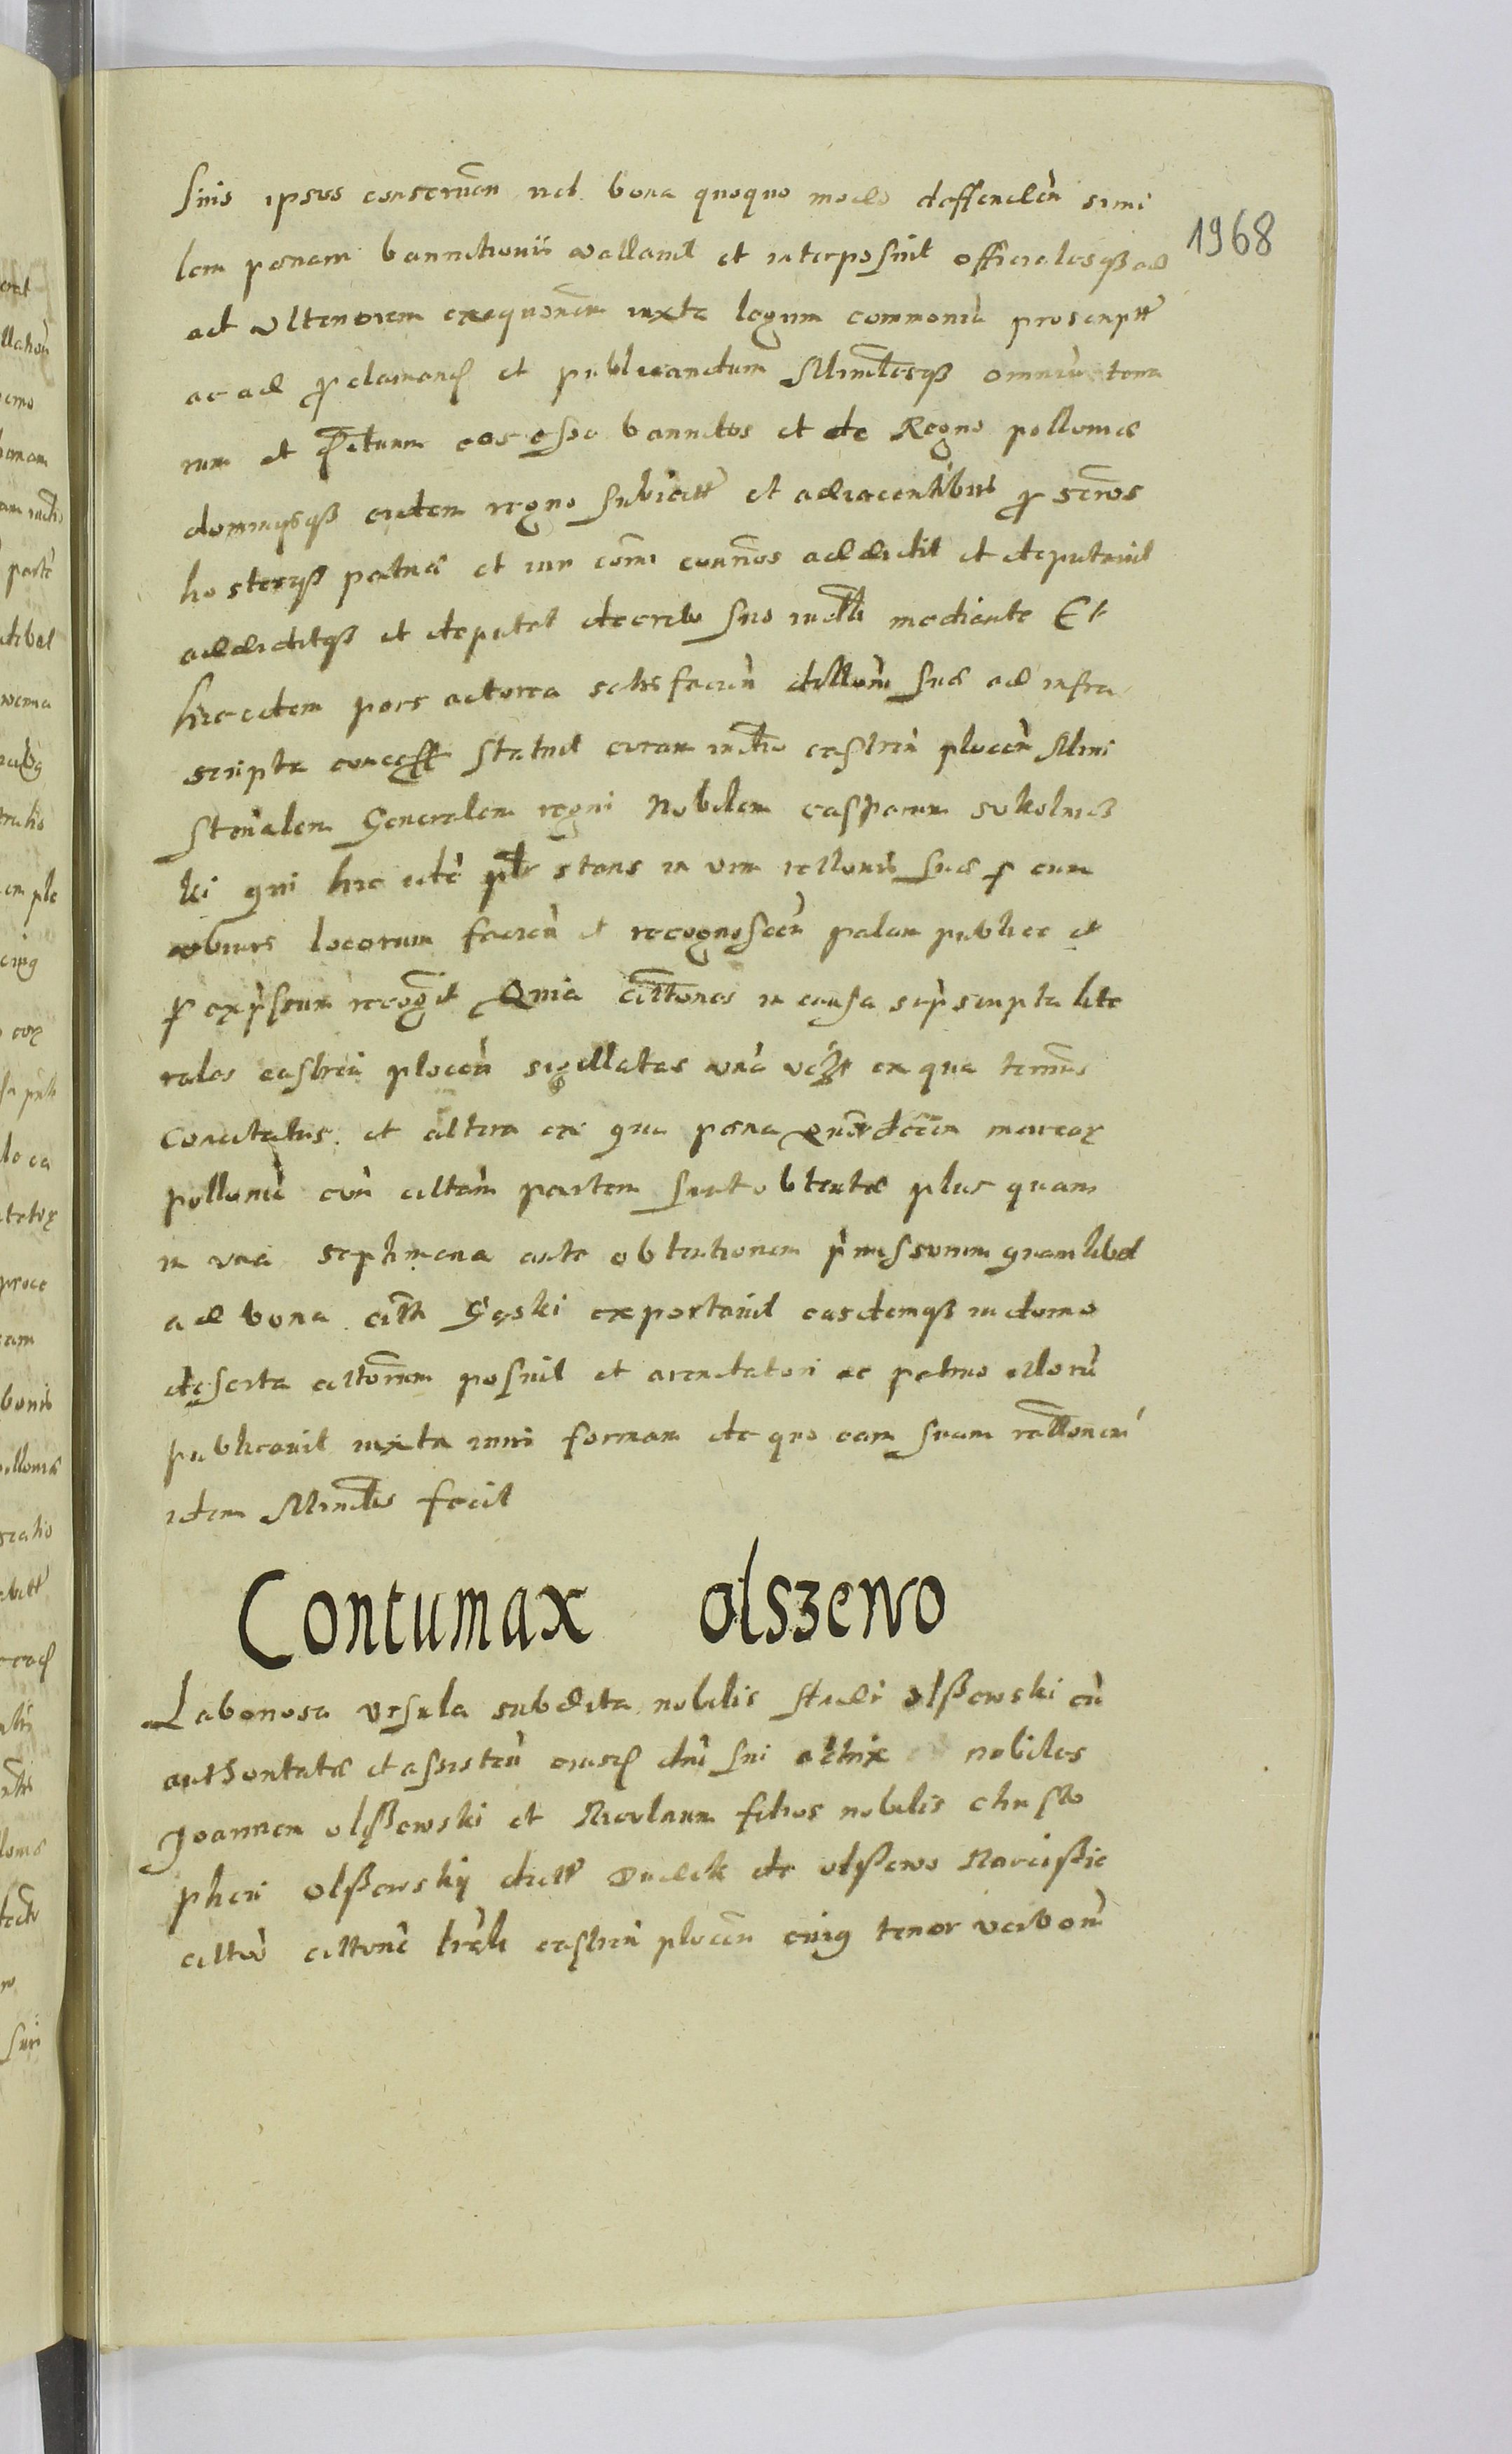 suis ipsos conserven vel bona quoquo modo deffenden simi
lem penam bannitionis vallavit et interposuit officialesq ad
ad ulteriorem exequonem iuxta legum communiu proscriptt
ac ad proclamand et publicandum Ministlesq omnium terra
rum et Dctuum eos esse bannitos et de Regno polloniæ
dominysq eidem regno subiectt et adiacentibus proscros
hostesq patriæ et iuri comi connos addidit et deputavit
addiditq et deputat decreto suo iudlli mediante Et
hic idem pars actorea satisfacien citllom suæ ad infra
scripta concess statuit coram iudicio castren plocen Mini
sterialem Generalem regni Nobilem casparum sokolnicz
ki qui hic ide plr stans in vim rellonis suæ per eum
obivis locorum facien et recognoscen palam publice et
per expssum recogit Quia citllones in causa suprscripta lite
rales castren plocen sigillatas una vczt ex qua terminus
concitatus et altera ex qua pena quordecim marcar
pollonic con citlam partem sunt obtentæ plus quam
in una septimana ante obtentionem pmissorum quamlibet
ad bona citti Gęski exportavit easdemq in domo
deserta citlonem posuit et arendatori ac patruo illoru
publicavit iuxta iuris formam de quo eam suam rallonem
idem Ministlis fecit
Contumax olszewo
Laboriosa Ursula subdita nobilis studi olßewski cu
authoritate et assisten eiusd dni sui actrix nobiles
Joannem olßewski et Nicolaum filios nobilis christo
pheri olßewskij dictt Dudek de olßewo Narcissie
citllos citllone lrali castren plocen cuius tenor verborum